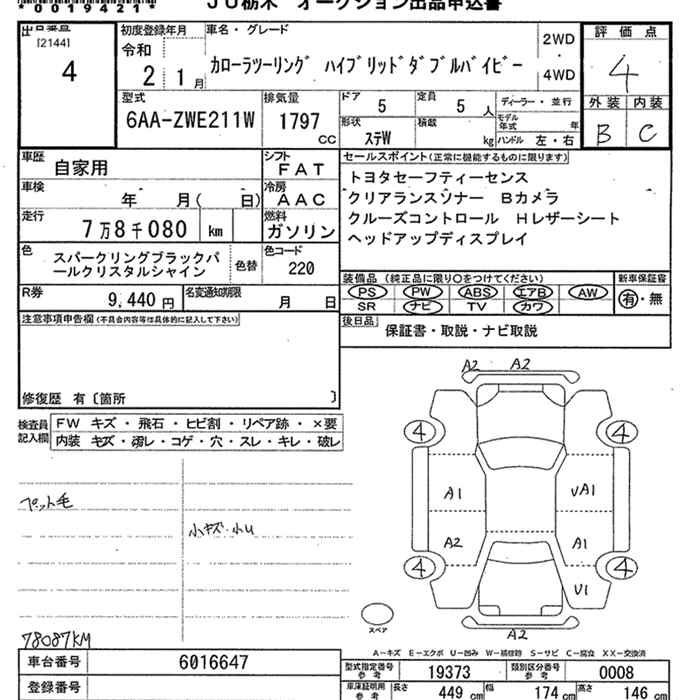 *0019421* JU栃木 オークション出品申込書
出品番号 [2144] 4
初度登録年月 令和 2 1月
車名・グレード カローラツーリング ハイブリッドダブルバイビー
2WD 4WD
評価点 4
外装 B 内装 C
型式 6AA-ZWE211W
排気量 1797 CC
ドア 5 定員 5 人
形状 ステW 積載 kg
ディーラー・並行
モデル年式 年
ハンドル 左・右
車歴 自家用
シフト FAT
車検 年 月( 日)
冷房 AAC
走行 7万8千080 km
燃料 ガソリン
色 スパークリングブラックパールクリスタルシャイン
色替 色コード 220
R券 9,440円
名変通知期限 月 日
セールスポイント(正常に機能するものに限ります)
トヨタセーフティーセンス
クリアランスソナー Bカメラ
クルーズコントロール Hレザーシート
ヘッドアップディスプレイ
装備品 (純正品に限り○をつけてください) 新車保証書
PS PW ABS エアB AW 有・無
SR ナビ TV カワ
後日品 保証書・取説・ナビ取説
注意事項申告欄(不具合内容等は具体的に記入して下さい)
修復歴 有〔箇所 〕
検査員記入欄
FW キズ・飛石・ヒビ割・リペア跡・×要
内装 キズ・汚レ・コゲ・穴・スレ・キレ・破レ
ペット毛
小キズ・小U
78087KM
A2 A2
4 4
A1 VA1
A2 A1
4 4
V1
A2
スペア
A-キズ E-エクボ U-凹み W-補修跡 S-サビ C-腐食 XX-交換済
車台番号 6016647
登録番号
型式指定番号 参考 19373 類別区分番号 参考 0008
車庫証明用 参考 長さ 449 cm 幅 174 cm 高さ 146 cm